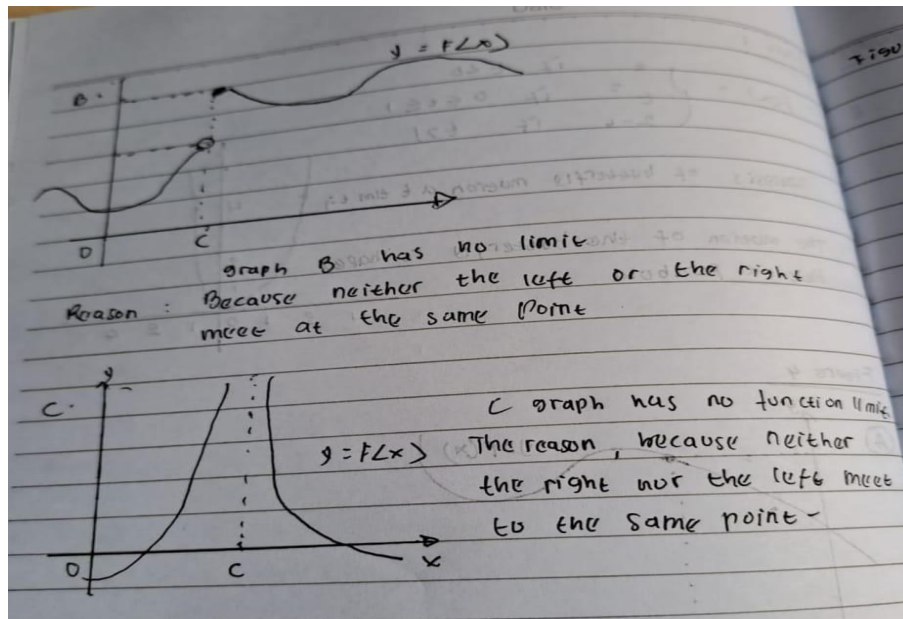 Figu
y = F(x)
B.
O
C
graph B has no limit
Reason : Because neither the left or the right
meet at the same point
y
C.
y = F(x)
O
C
x
C graph has no function limit
The reason, because neither
the right nor the left meet
to the same point-